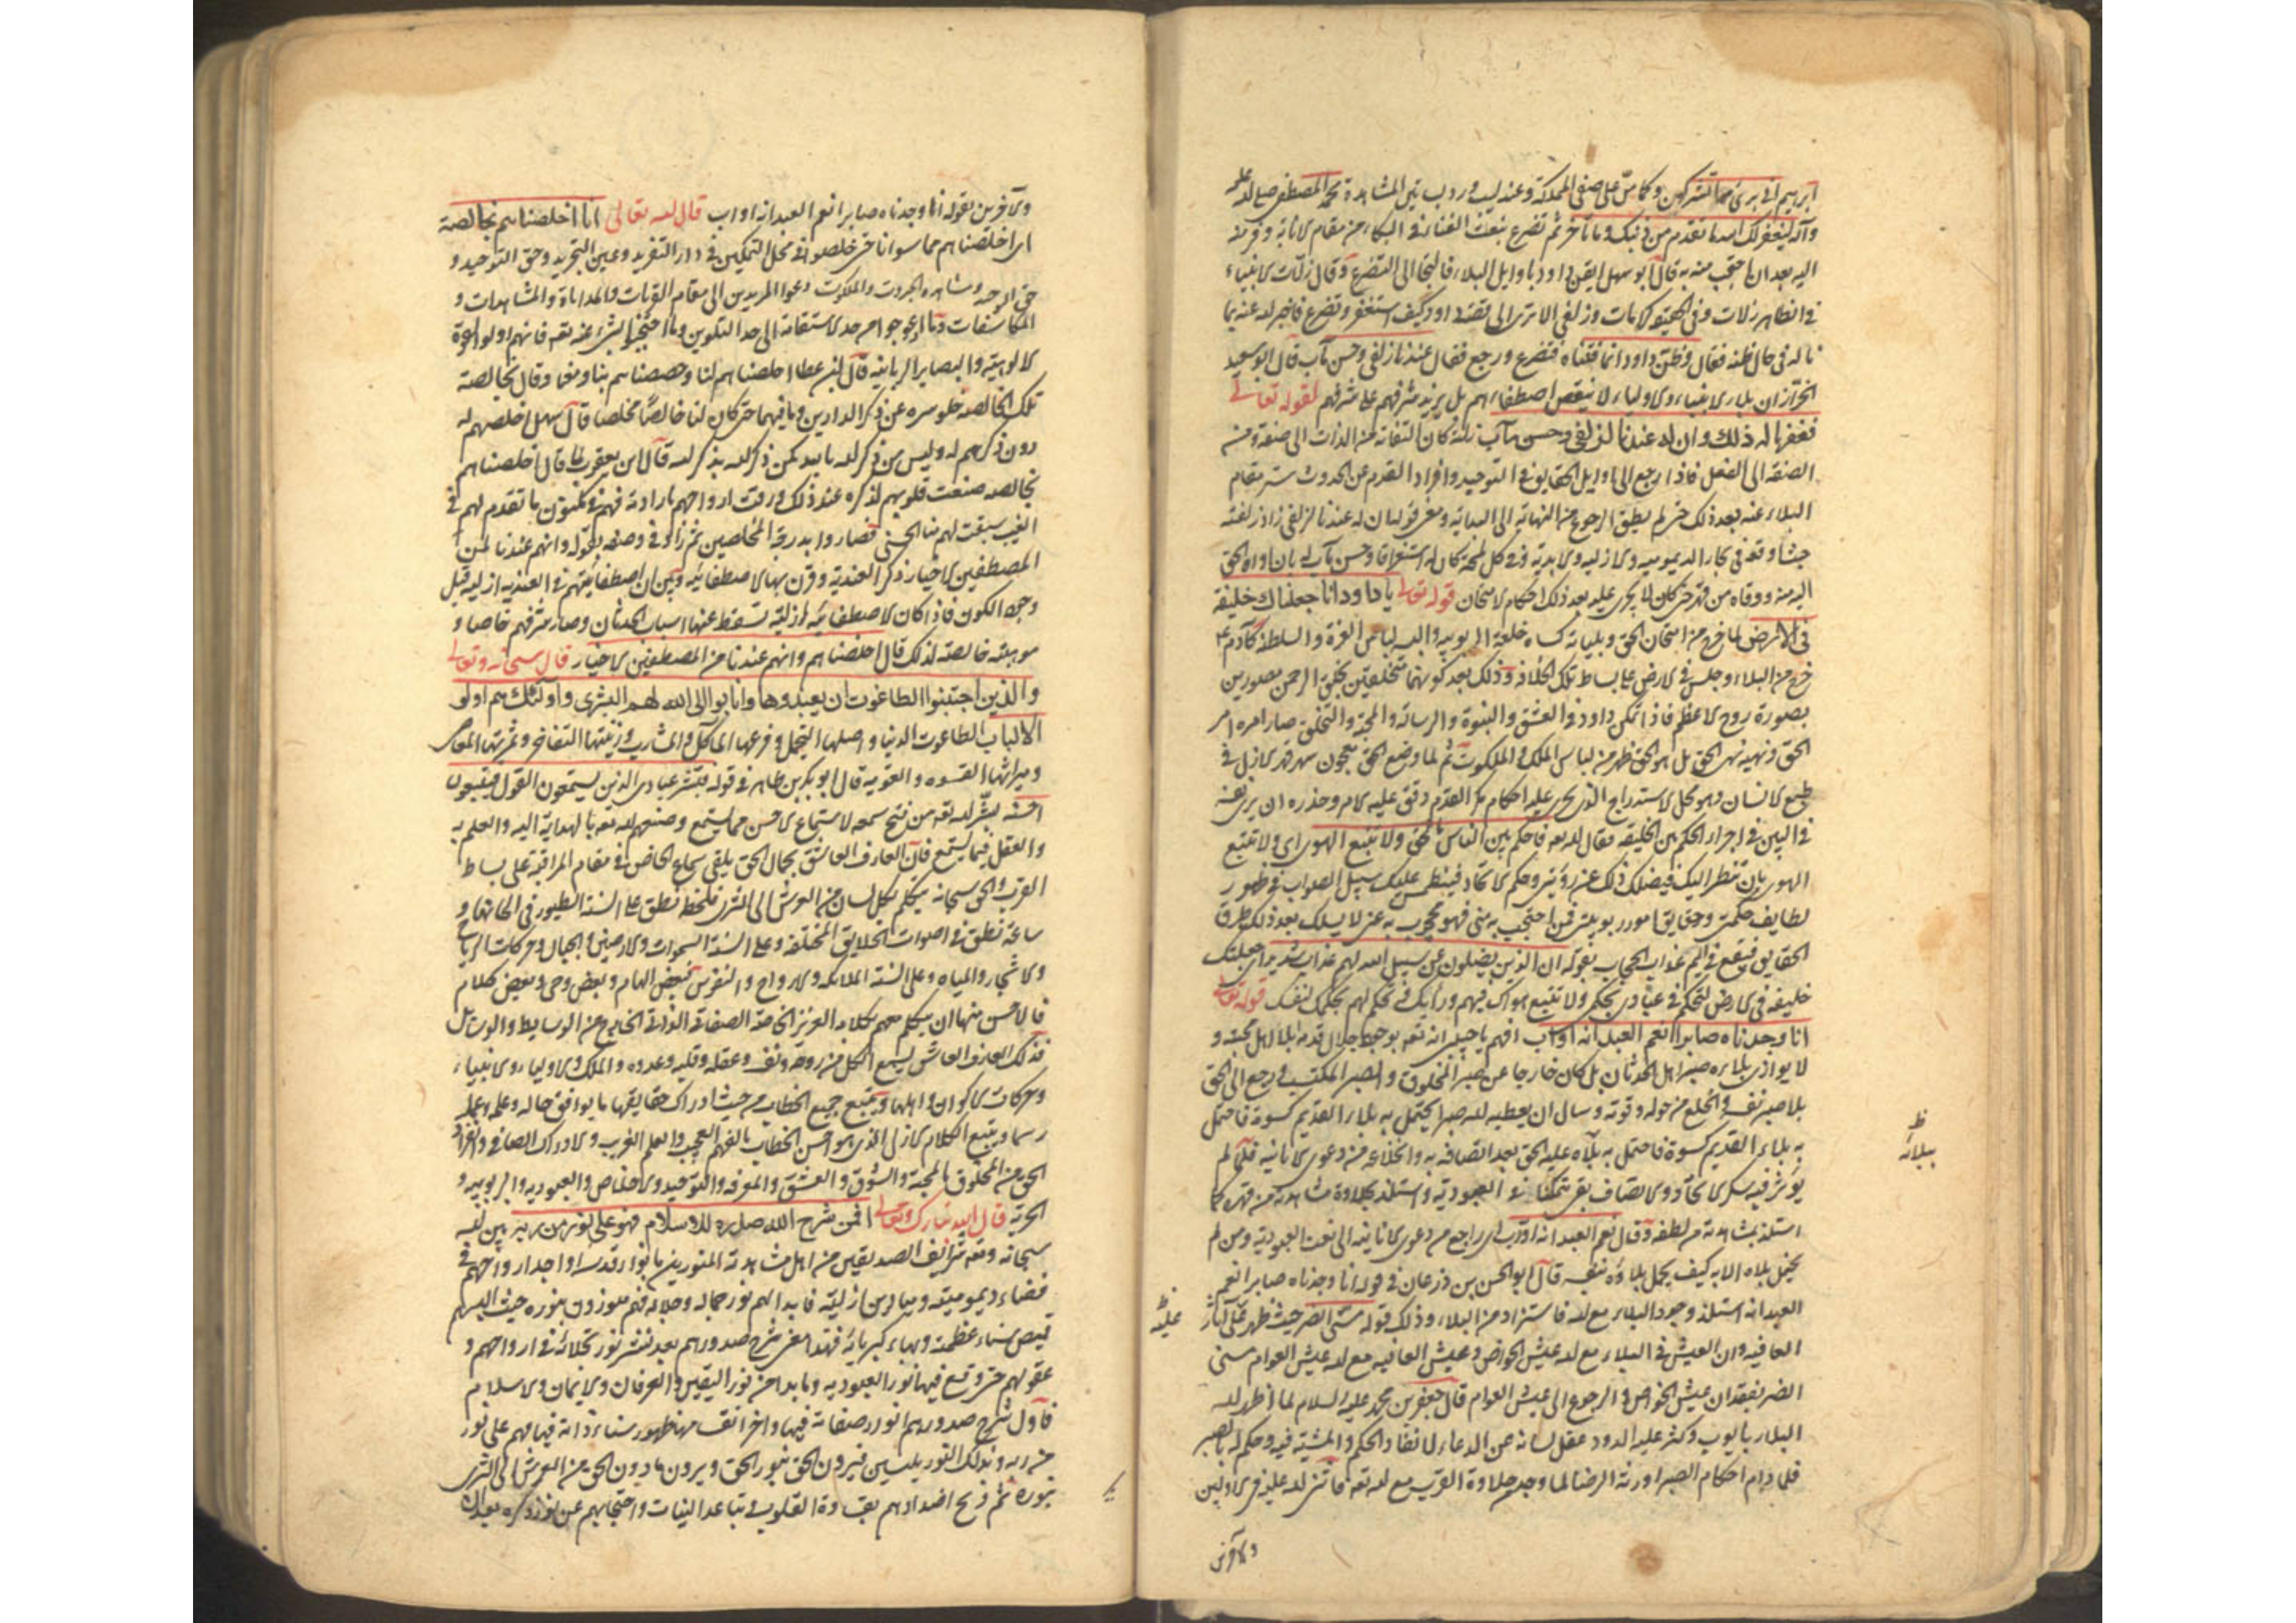 ابرهيم انى برىء مما تشركون وكما من على صفى المملكة وعند ليث ورد ب نيل المشاهدة محمد المصطفى صلى الله عليه
وآله ليغفر لك الله ما تقدم من ذنبك وما تأخر ثم تضرع بنعت الفناء فى البكاء من مقام الانابة وفر منه
اليه بعد ان احتجب منه به قال ابو سهل ايقن داود باوايل البلاء فالتجا الى التضرع وقال زلات الانبياء
فى الظاهر زلات وفى الحقيقة كرامات وزلفى الا ترى الى قصة داود كيف استغفر وتضرع فاخبر الله عنه بما
ناله فى حال ظنه فقال وظن داود انما فتناه فتضرع ورجع فقال عندنا زلفى وحسن مآب قال ابو سعيد
الخراز ان بلاء الانبياء والاولياء لا ينقص اصطفاءهم بل يزيد شرفهم على شرفهم لقوله تعالى
فغفرنا له ذلك وان له عندنا لزلفى وحسن مآب زلته كان التفاته من الذات الى صفة ومن
الصفة الى الفعل فاذا رجع الى اوايل الحقايق فى التوحيد وافراد القدم عن الحدوث ستر مقام
البلاء عنه بعد ذلك حتى لم يطق الرجوع من النهاية الى البداية ومعنى قوله ان له عندنا لزلفى زاد زلفته
حيث اوقعه فى بحار الديمومية والازلية والابدية وفى كل لمحة كان له استغراقا وحسن مآب اى بان اواه الحق
اليه منه ووقاه من قهره حتى كان لا يجرى عليه بعد ذلك احكام الامتحان قوله تعالى يا داود انا جعلناك خليفة
فى الارض لما خرج من امتحان الحق وبلياته كساه خلعة الربوبية والبسه لباس العزة والسلطنة كآدم
خرج من البلاء وجلس فى الارض على بساط تلك الخلافة وذلك بعد كونهما متخلقين بخلق الرحمن مصورين
بصورة روح الاعظم فاذا تمكن داود فى العشق والنبوة والرسالة والمحبة والتخلق صار امره امر
الحق ونهيه نهى الحق بل هو الحق ظهر من لباس الملك والملكوت ثم لما وضع الحق معجون سر قهر الازل فى
طبع الانسان وهو محل الاستدراج الذى يجرى عليه احكام مكر القدم دقق عليه الامر وحذره ان يرى نفسه
فى البين فى اجراء الحكم بين الخليقة فقال الله تعه فاحكم بين الناس بالحق ولا تتبع الهوى اى ولا تتبع
الهوى بان تنظر اليك فيضلك ذلك عن رؤيتى وحكم الاتحاد فينطمس عليك سبيل الصواب فى ظهور
لطايف حكمتى وحقايق امور ربوبيتى فمن احتجب به منى فهو محجوب به عنى لا يسلك بعد ذلك طرق
الحقايق فيقع فى اليم عذاب الحجاب بقوله ان الذين يضلون عن سبيل الله لهم عذاب شديد اى جعلتك
خليفة فى الارض لتحكم فى عبادى بحكمى ولا تتبع هواك فيهم ورأيك فتحكم لهم بحكمك لنفسك قوله تعالى
انا وجدناه صابرا نعم العبد انه اواب افهم يا حبيبى انه تعه بوجه جلال قدمه ابلا اهل محبته و
لا يوازى بلاءه صبر اهل الحدثان بل كان خارجا عن صبر المخلوق والصبر المكتسب فرجع الى الحق
بلا صبر نفسه وانخلع من حوله وقوته وسال ان يعطيه الله صبرا يحتمل به بلاء القديم كسوة فاحتمل
به بلاء القديم كسوة فاحتمل به بلاه عليه الحق بعد اتصافه به وانخلاعه من دعوى الانانية فلما لم
يؤثر فيه سكر الاتحاد والاتصاف بقى متمكنا فى العبودية واستلذ بحلاوة مشاهدته من قهره كما
استلذ بمشاهدته من لطفه وقال نعم العبد انه اواب اى راجع من دعوى الانانية الى نعت العبودية ومن لم
يحتمل بلاه الا به كيف يحمل بلاؤه نفسه قال ابو الحسن بن زرعان فى قوله انا وجدناه صابرا نعم
العبد انه استلذ وجود البلاء مع الله فاستزاد من البلاء وذلك قوله مسنى الضر حيث ظهر على آثار
العافية وان العيش فى البلاء مع الله عيش الخواص وعيش العافية مع الله عيش العوام مسنى
الضر بفقدان عيش الخواص والرجوع الى عيش العوام قال جعفر بن محمد عليه السلام لما اظهر الله
البلاء بايوب وكثر عليه الدود عقل لسانه عن الدعاء لانفاذ الحكم والمشية فيه وحكم له بالصبر
فلما دام احكام الصبر اورثه الرضا لما وجد من حلاوة القرب مع الله تعه فاثنى الله عليه فى الاولين
والآخرين
ظ
ببلائه
ظ
عليه
والآخرين بقوله انا وجدناه صابرا نعم العبد انه اواب قال الله تعالى انا اخلصناهم بخالصة
اى اخلصناهم مما سوانا حتى خلصوا فى محل التمكين فى دار التفريد وعين التجريد وحق التوحيد و
حق الوحدة ومشاهدة الجبروت والملكوت دعوا المريدين الى مقام القربات والمداناة والمشاهدات و
المكاشفات وما اعوجوا من حد الاستقامة الى حد التكوين وما احتجبوا بشىء عنه تعه فانهم اولو القوة
الالوهية والبصاير الربانية قال ابن عطا اخلصناهم لنا وخصصناهم بنا ومنا وقال بخالصة
تلك الخالصة خلو سره عن ذكر الدارين وما فيهما حتى كان لنا خالصا مخلصا قال سهل اخلصهم له
دون ذكرهم له وليس من ذكر الله بالله كمن ذكر الله بذكر الله قال ابو يعقوب لما قال اخلصناهم
بخالصة صنعت قلوبهم لذكره عند ذلك ورقت ارواحهم بارادته فهم فى مكنون ما تقدم لهم فى
الغيب سبقت لهم منا الحسنى فصاروا بدرجة المخلصين ثم زاد فى وصفه بقوله وانهم عندنا لمن
المصطفين الاخيار ذكر العندية وقرن بها الاصطفائية وبين ان اصطفائيتهم فى العندية ازلية قبل
وجود الكون فاذا كان الاصطفائية ازلية تسقط عنها اسباب الحدثان وصار شرفهم خاصا و
موهبته خالصة لذلك قال اخلصناهم وانهم عندنا من المصطفين الاخيار قال سبحانه وتعالى
والذين اجتنبوا الطاغوت ان يعبدوها وانابوا الى الله لهم البشرى واولئك هم اولو
الالباب الطاغوت الدنيا واصلها التجمل وفرعها المآكل والمشارب وزينتها التفاخر وثمرتها المعاصى
وميراثها القسوة والعقوبة قال ابو بكر بن طاهر فى قوله فبشر عبادى الذين يستمعون القول فيتبعون
احسنه بشر الله تعه من فتح سمعه لاستماع الاحسن مما يستمع وصنفهم الله تعه بالهداية اليه والعلم به
والعقل فيما يستمع فان العارف العاشق بجمال الحق يلقى سماع الخاص فى مقام المراقبة على بساط
القرب والحق سبحانه يتكلم بكل لسان من العرش الى الثرى فلحظة نطق على السنة الطيور فى الحانها و
ساعة نطق فى اصوات الخلايق المختلفة وعلى السنة السموات والارضين والجبال وحركات الرياح
والاشجار والمياه وعلى السنة الملائكة والارواح والنفوس فبعض الهام وبعض وحى وبعض كلام
فالاحسن منها ان يتكلم معهم بكلامه العزيز الخاصة الصفاتى الذاتى الخارج من الوسايط والوسائل
فذلك العارف العاشق يسمع الكل من روحه ونفسه وعقله وقلبه وعدوه والملك والاولياء والانبياء
وحركات الاكوان واهلها ويتبع جميع الخطاب من حيث ادراك حقايقها ما يوافق حاله وعلمه وعمله
رسما ويتبع الكلام الازلى الذى هو احسن الخطاب بالفهم العجيب والعلم الغريب والادراك الصافى وانفراد
الحق من المخلوق بالمحبة والشوق والعشق والمعرفة والتوحيد والاخلاص والعبودية والربوبية و
الحرية قال الله تبارك وتعالى افمن شرح الله صدره للاسلام فهو على نور من ربه بين الله
سبحانه وتعه شرائف الصديقين من اهل مشاهدته المنورين بانوار قدسه اوجد ارواحهم فى
فضاء ديموميته وميادين ازليته فابدا لهم نور جماله وجلاله فهم منورون بنوره حيث البسهم
قميص سناء عظمته وبهاء كبريائه فهذا معنى شرح صدورهم بعد نشر نور تجلائه فى ارواحهم و
عقولهم حتى وقع فيها نور العبودية وما بدا من نور اليقين والعرفان والايمان والاسلام
فاول شرح صدورهم انوار صفاته فيها واخر انفس منها ظهور سناء ذاته فيها فهم على نور
من ربه وبذلك النور يلبسين فيرون الحق بنور الحق ويرون ما دون الحق من العرش الى الثرى
بنوره ثم وبخ اضدادهم بقساوة القلوب وتباعد النيات واحتجابهم عن نور ذكره بعد ان